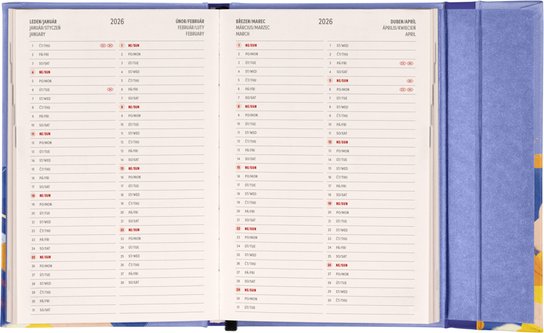 LEDEN/JANUÁR
JANUÁR/STYCZEŃ
JANUARY
2026
1 ČT/THU
2 PÁ/FRI
3 SO/SAT
4 NE/SUN
5 PO/MON
6 ÚT/TUE
7 ST/WED
8 ČT/THU
9 PÁ/FRI
10 SO/SAT
11 NE/SUN
12 PO/MON
13 ÚT/TUE
14 ST/WED
15 ČT/THU
16 PÁ/FRI
17 SO/SAT
18 NE/SUN
19 PO/MON
20 ÚT/TUE
21 ST/WED
22 ČT/THU
23 PÁ/FRI
24 SO/SAT
25 NE/SUN
26 PO/MON
27 ÚT/TUE
28 ST/WED
29 ČT/THU
30 PÁ/FRI
31 SO/SAT
ÚNOR/FEBRUÁR
FEBRUÁR/LUTY
FEBRUARY
1 NE/SUN
2 PO/MON
3 ÚT/TUE
4 ST/WED
5 ČT/THU
6 PÁ/FRI
7 SO/SAT
8 NE/SUN
9 PO/MON
10 ÚT/TUE
11 ST/WED
12 ČT/THU
13 PÁ/FRI
14 SO/SAT
15 NE/SUN
16 PO/MON
17 ÚT/TUE
18 ST/WED
19 ČT/THU
20 PÁ/FRI
21 SO/SAT
22 NE/SUN
23 PO/MON
24 ÚT/TUE
25 ST/WED
26 ČT/THU
27 PÁ/FRI
28 SO/SAT
BŘEZEN/MAREC
MÁRCIUS/MARZEC
MARCH
2026
1 NE/SUN
2 PO/MON
3 ÚT/TUE
4 ST/WED
5 ČT/THU
6 PÁ/FRI
7 SO/SAT
8 NE/SUN
9 PO/MON
10 ÚT/TUE
11 ST/WED
12 ČT/THU
13 PÁ/FRI
14 SO/SAT
15 NE/SUN
16 PO/MON
17 ÚT/TUE
18 ST/WED
19 ČT/THU
20 PÁ/FRI
21 SO/SAT
22 NE/SUN
23 PO/MON
24 ÚT/TUE
25 ST/WED
26 ČT/THU
27 PÁ/FRI
28 SO/SAT
29 NE/SUN
30 PO/MON
31 ÚT/TUE
DUBEN/APRÍL
ÁPRILIS/KWIECIEŃ
APRIL
1 ST/WED
2 ČT/THU
3 PÁ/FRI
4 SO/SAT
5 NE/SUN
6 PO/MON
7 ÚT/TUE
8 ST/WED
9 ČT/THU
10 PÁ/FRI
11 SO/SAT
12 NE/SUN
13 PO/MON
14 ÚT/TUE
15 ST/WED
16 ČT/THU
17 PÁ/FRI
18 SO/SAT
19 NE/SUN
20 PO/MON
21 ÚT/TUE
22 ST/WED
23 ČT/THU
24 PÁ/FRI
25 SO/SAT
26 NE/SUN
27 PO/MON
28 ÚT/TUE
29 ST/WED
30 ČT/THU